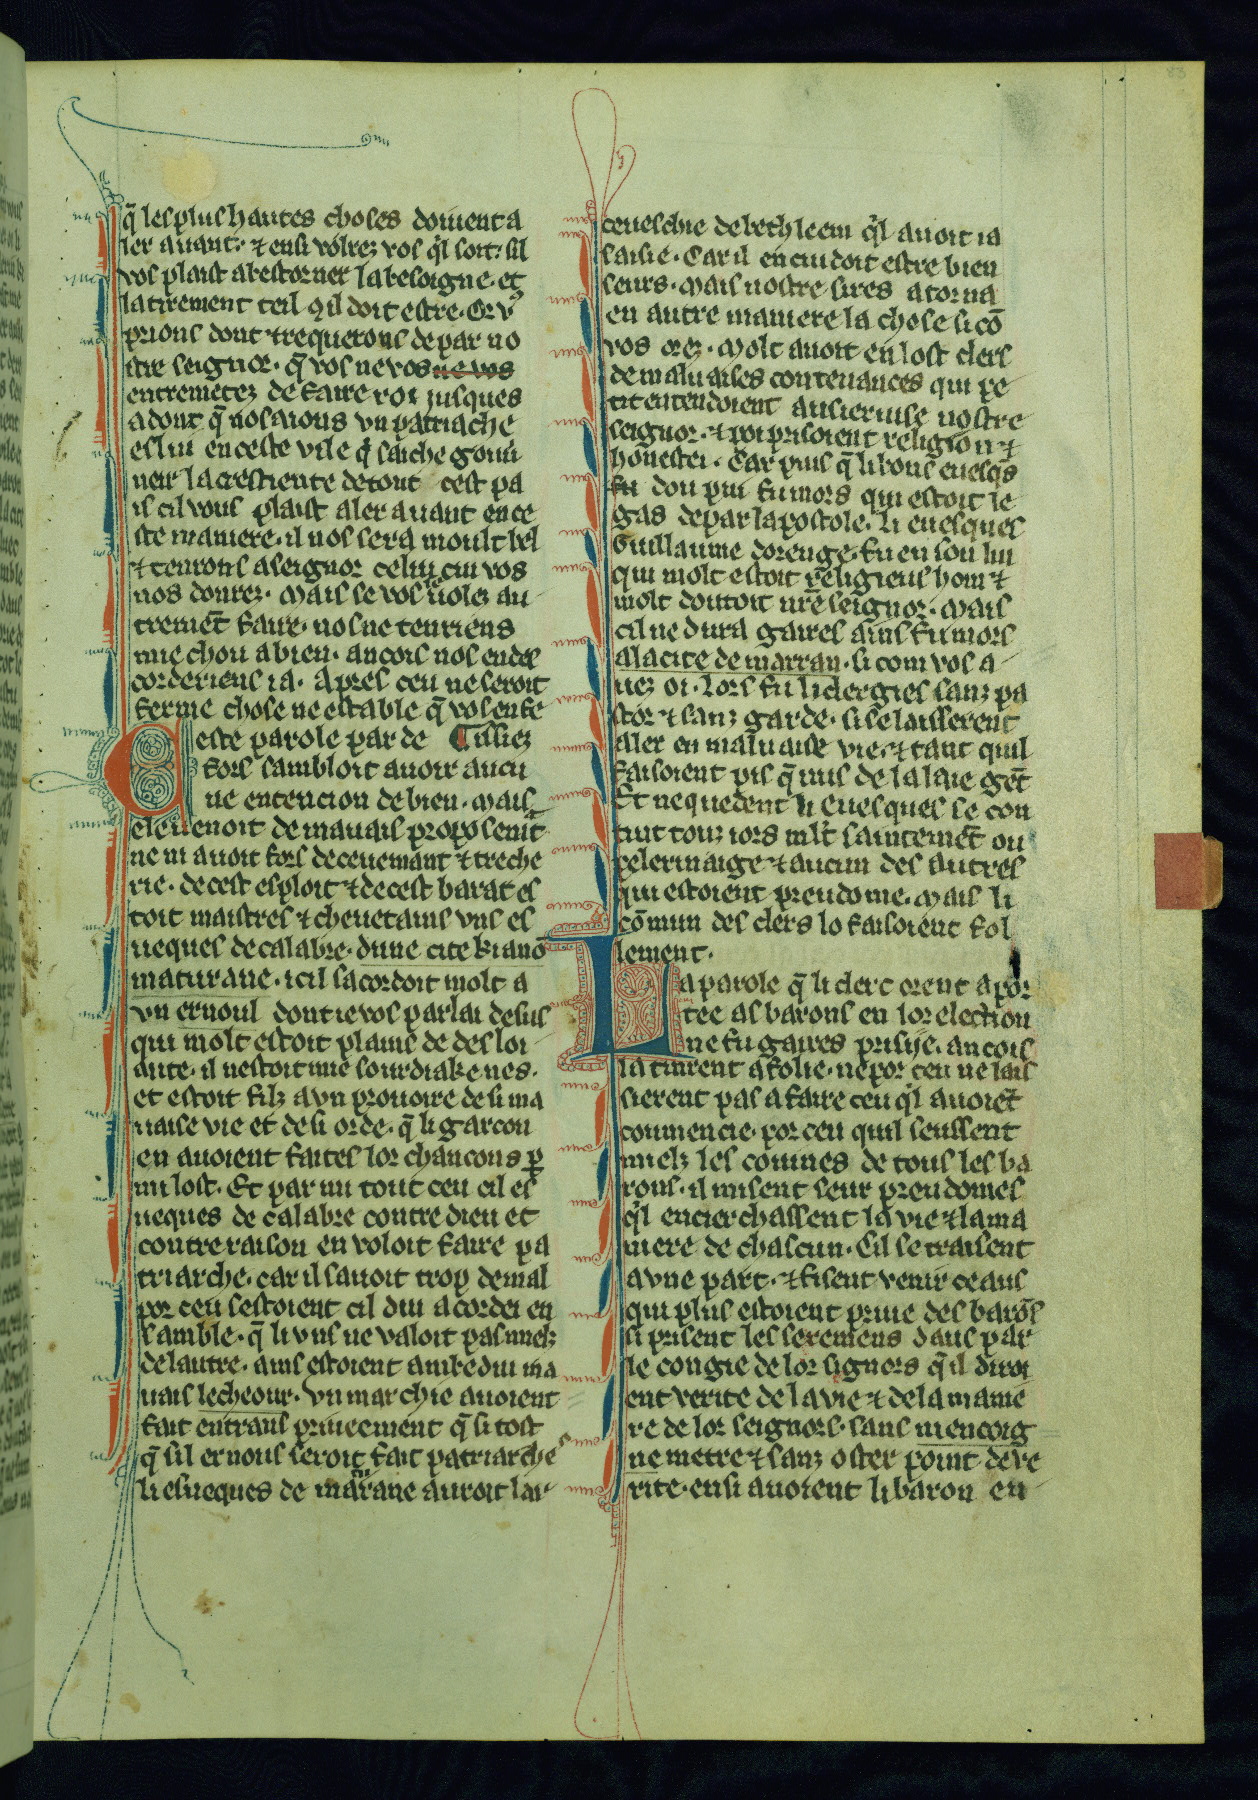 q̃ les plus hautes choses doiuent a
ler auant. ⁊ ensi volrez vos q̃l soit. sil
vos plaist abestorner la besoigne. et
latirement teil q̓l doit estre. Or vꝰ
prions dont ⁊requerons depar no
stre seignor. q̃ vos ne vos ne vos
entremetez de faire roi jusques
adont q̃ nos aions vn patriache
esliu en ceste vile q̓ saiche gouu
neir la crestiente de tout cest pa
is cil vous plaist aler auant en ce
ste maniere. il nos sera moult bel
⁊ tenrons a seignor celui cui vos
nos donrez. Mais se vos le uolez au
tremēt faire. nos ne tenriens
mie chou a bien. ancois nos en des
corderiens ia. apres ceu ne seroit
ferme chose ne estable q̃ vos en fe
Ceste parole par de issiez
fors sambloit auoir aucu
ne entencion de bien. Mais
ele uenoit de mauais propos seniēt
ne ni auoit fors deceuemant ⁊ treche
rie. de cest esploit ⁊ de cest barat es
toit maistres ⁊ cheuetains vns es
ueques de calabre. dune cite ki a no
maturane. icil sacordoit molt a
vn ernoul dont ie vos parlai desus
qui molt estoit plains de desloi
aute. il nestoit mie sourdiakenes.
et estoit filz a vn prouoire de si ma
uaise vie et de si orde. q̃ li garcon
en auoient faites lor chancons ꝑ
mi lost. Et par mi tout ceu cil es
ueques de calabre contre dieu et
contre raison en voloit faire pa
triarche. car il sauoit trop de mal
por ceu sestoient cil dui acordei en
samble. q̃ li vns ne valoit pas mielz
de lautre. ains estoient ambedui ma
uais lecheour. vn marchie auoient
fait entraus priueement q̃ si tost
q̃ sil ernous seroit fait patriarche
li esueques de marane auroit lar
ceueschie de bethleem q̓l auoit ia
saisie. Car il en cuidoit estre bien
seurs. Mais nostre sires atorna
en autre maniere la chose si cō
vos orez. Molt auoit en lost clers
de maluaises contenances qui pe
tit entendoient au seruise nostre
seignor. ⁊ poi prisoient religion ⁊
honestei. Car puis q̃ li bons euesq̄s
fu dou pui fu mors qui estoit le
gas depar lapostole. li euesques
Guillaume dorenge. fu en son liu
qui molt estoit religieus hom ⁊
molt doutoit nr̄e seignor. Mais
cil ne dura gaires ains fu mors
a la cite de marran. si com vos a
uez oi. Lors fu li clergies sanz pa
stor ⁊ sanz garde. si se laisserent
aler en maluaise vie. ⁊ tant quil
faisoient pis q̃ nus de la laie gēt
Et nequedent li euesques se con
tint touz iors ml̄t saintemēt ou
pelerinaige ⁊ aucun des autres
qui estoient preudome. Mais li
cōmun des clers lo faisoient fol
lement.
La parole q̃ li clerc orent apor
tee as barons en lor election
ne fu gaires prisije. ancois
la tinrent a folie. ne por ceu ne lais
sierent pas a faire ceu q̓l auoiēt
coumencie. por ceu quil seussent
mielz les couines de tous les ba
rons. il misent seur preudomes
q̓l encierchassent la vie ⁊ la ma
niere de chascun. Cil se traisent
a vne part. ⁊ fisent venir ceaus
qui plus estoient priue des barōs
si prisent les seremens daus par
le congie de lor signors q̃ il diroi
ent verite de la vie ⁊ de la manie
re de lor seignors. sans mencoig
ne metre ⁊ sanz oster point de ve
rite. ensi auoient li baron en